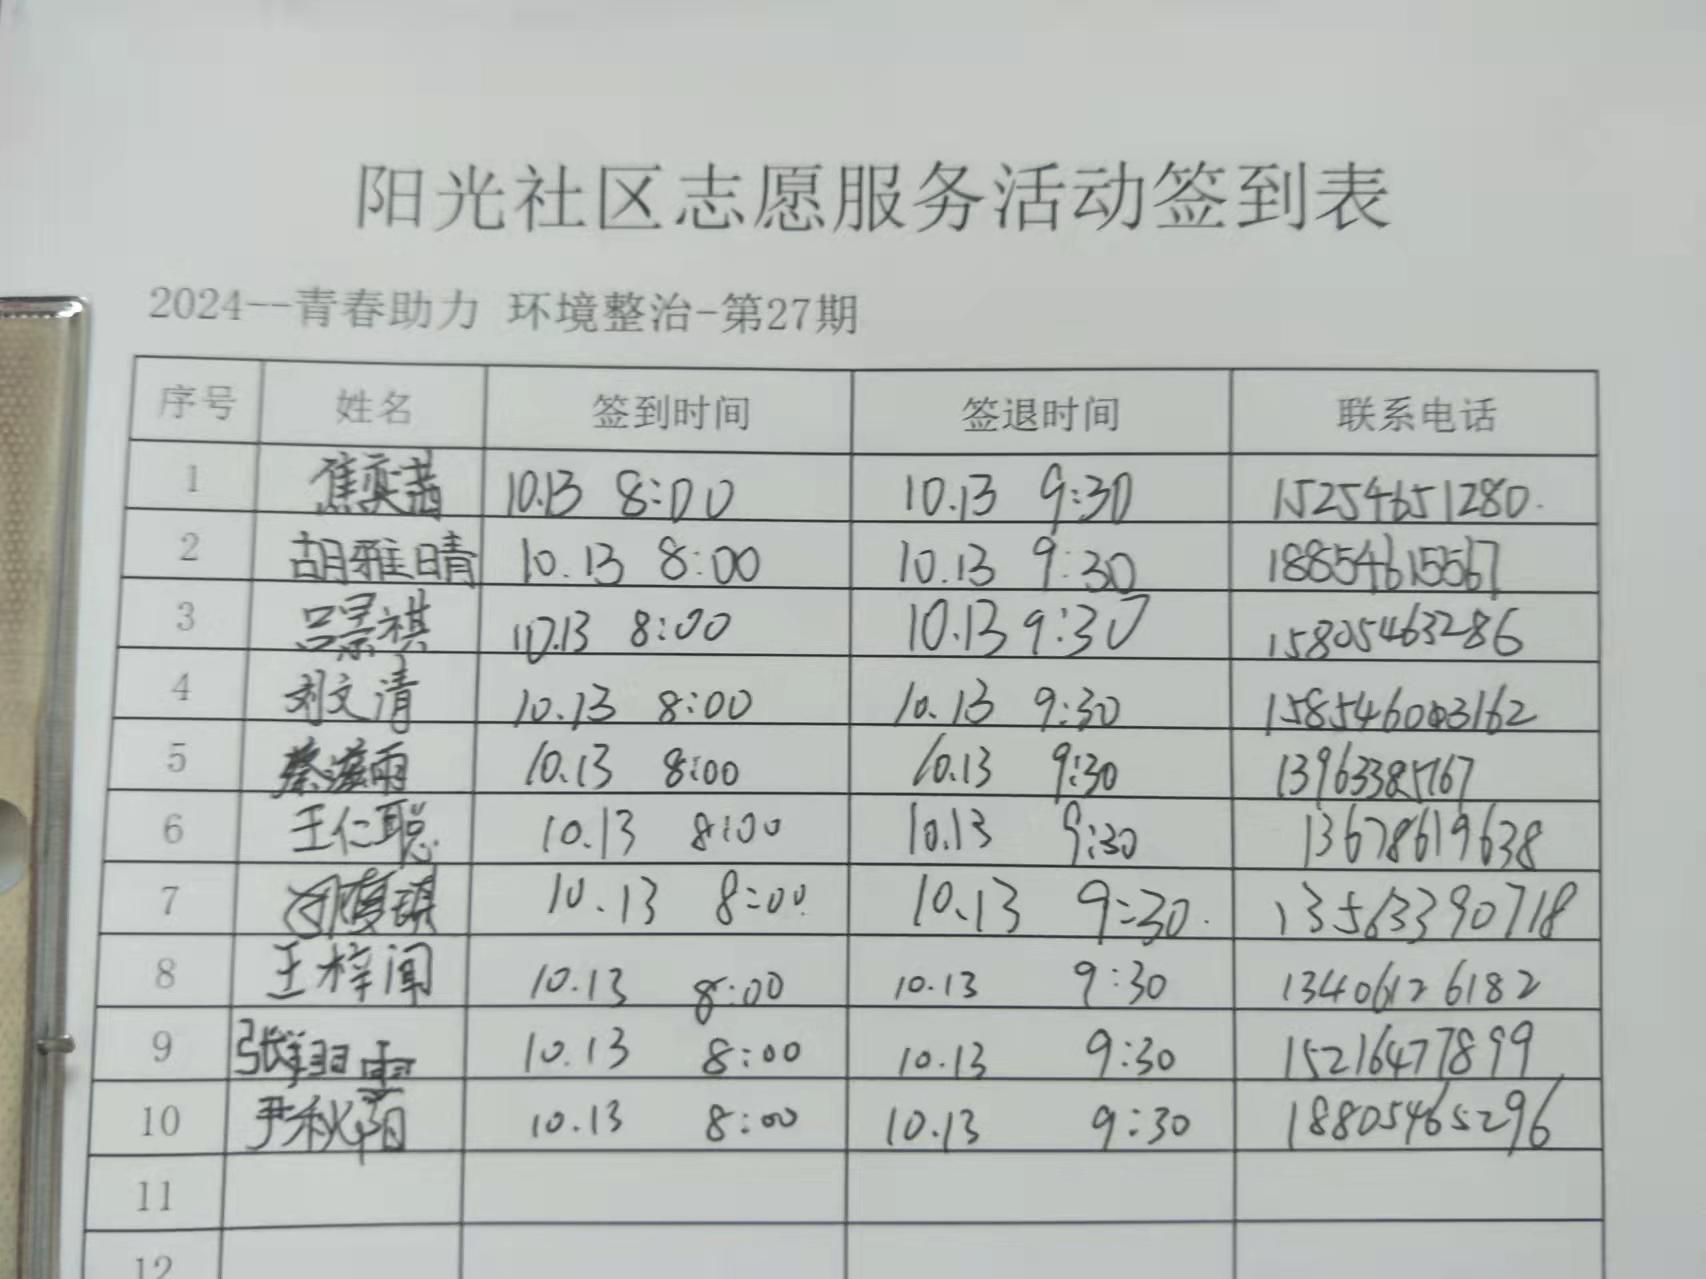 阳光社区志愿服务活动签到表
2024--青春助力 环境整治-第27期
序号 姓名 签到时间 签退时间 联系电话
1 焦奕茜 10.13 8:00 10.13 9:30 15254651280.
2 胡雅晴 10.13 8:00 10.13 9:30 18854615567
3 吕景祺 10.13 8:00 10.13 9:30 15805463286
4 刘文清 10.13 8:00 10.13 9:30
5 蔡滋雨 10.13 8:00 10.13 9:30
6 王仁聪 10.13 8:00 10.13 9:30 13678619638
7 10.13 8:00 10.13 9:30. 13563390718
8 王梓闻 10.13 8:00 10.13 9:30 13406126182
9 10.13 8:00 10.13 9:30 15216477899
10 尹秋阳 10.13 8:00 10.13 9:30 18805465296
11
12